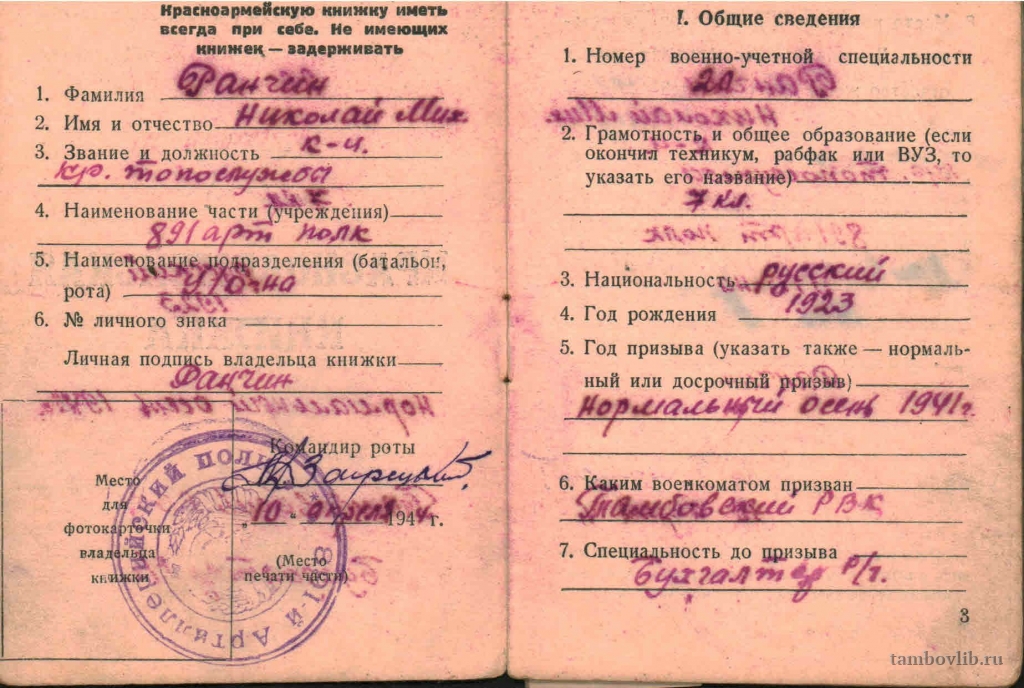 Красноармейскую книжку иметь
всегда при себе. Не имеющих
книжек — задерживать
1. Фамилия Ранчин
2. Имя и отчество Николай Мих.
3. Звание и должность к-ц.
кр. топослужбы
4. Наименование части (учреждения)
891 арт полк
5. Наименование подразделения (батальон,
рота)
6. № личного знака
Личная подпись владельца книжки
Ранчин
Командир роты
Место
для
фотокарточки
владельца
книжки
„10" апреля 1944 г.
(Место
печати части)
891-й Артиллерийский полк
I. Общие сведения
1. Номер военно-учетной специальности
20
2. Грамотность и общее образование (если
окончил техникум, рабфак или ВУЗ, то
указать его название)
7 кл.
3. Национальность русский
4. Год рождения 1923
5. Год призыва (указать также — нормаль-
ный или досрочный призыв)
нормальный осень 1941 г.
6. Каким военкоматом призван
Тамбовский РВК
7. Специальность до призыва
Бухгалтер р/г.
3
tambovlib.ru